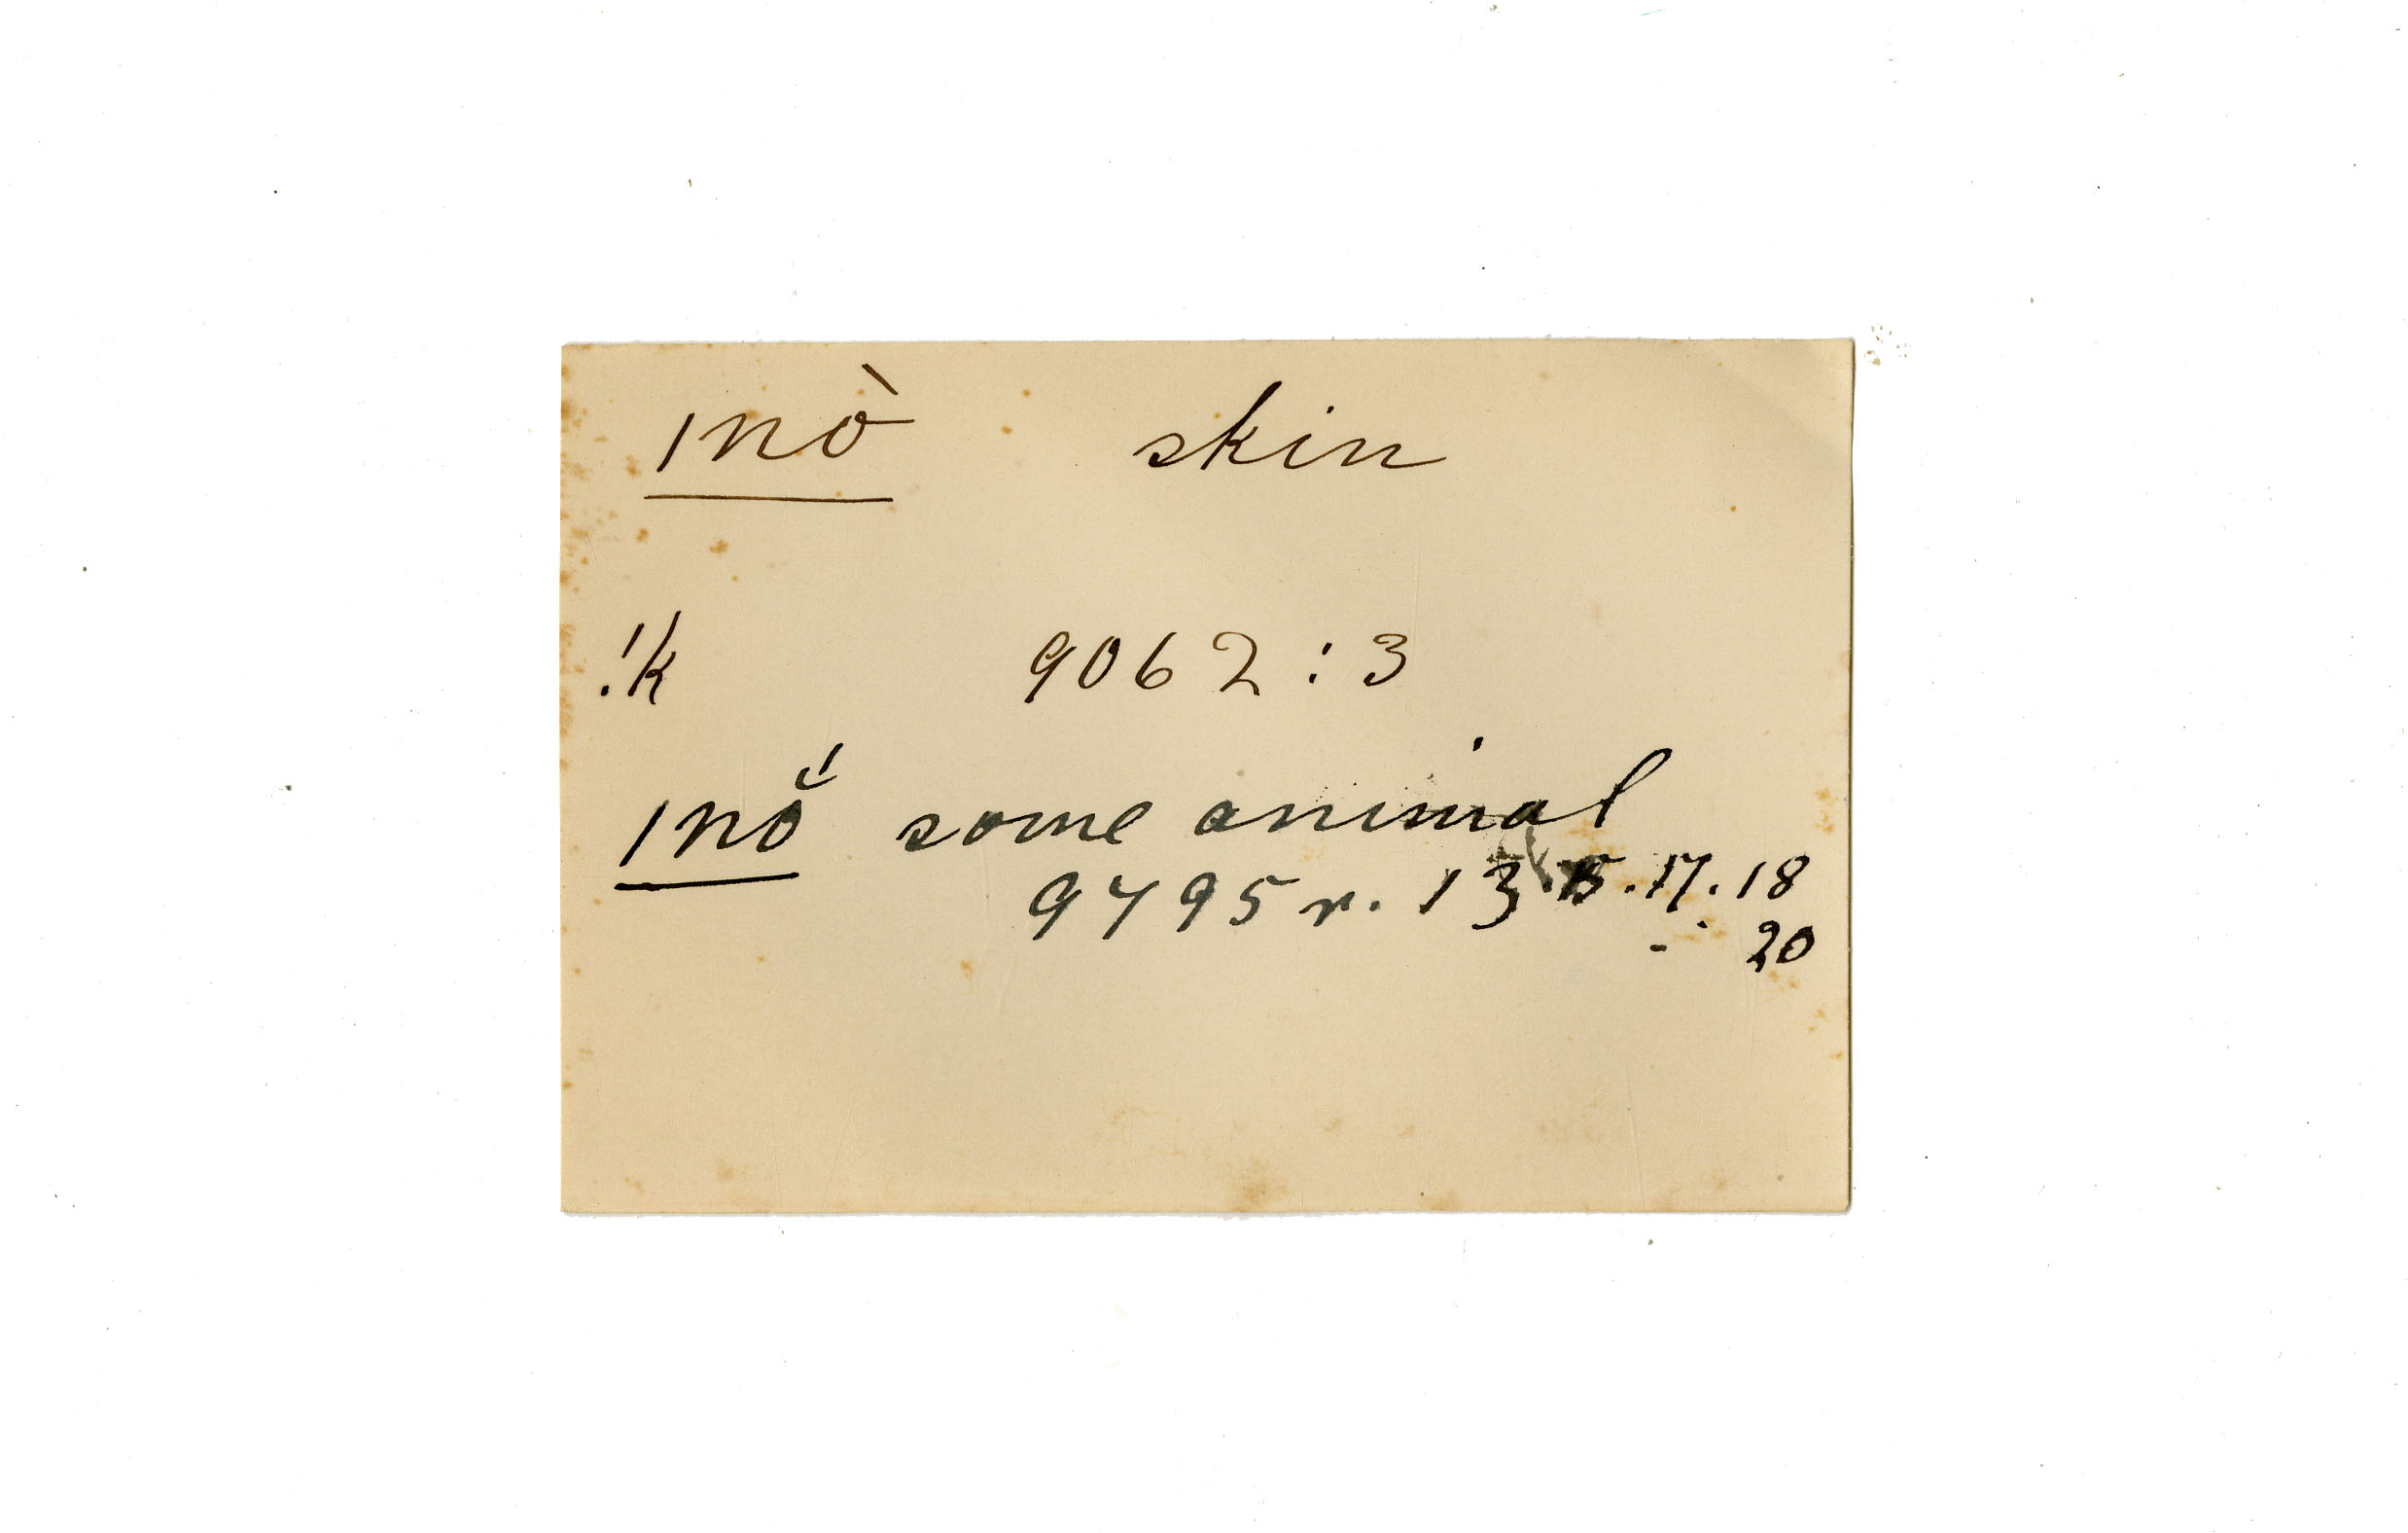 ǀnò skin
!k 9062 : 3
ǀnŏ́ some animal
9795 r. 13. 15. 17. 18
20